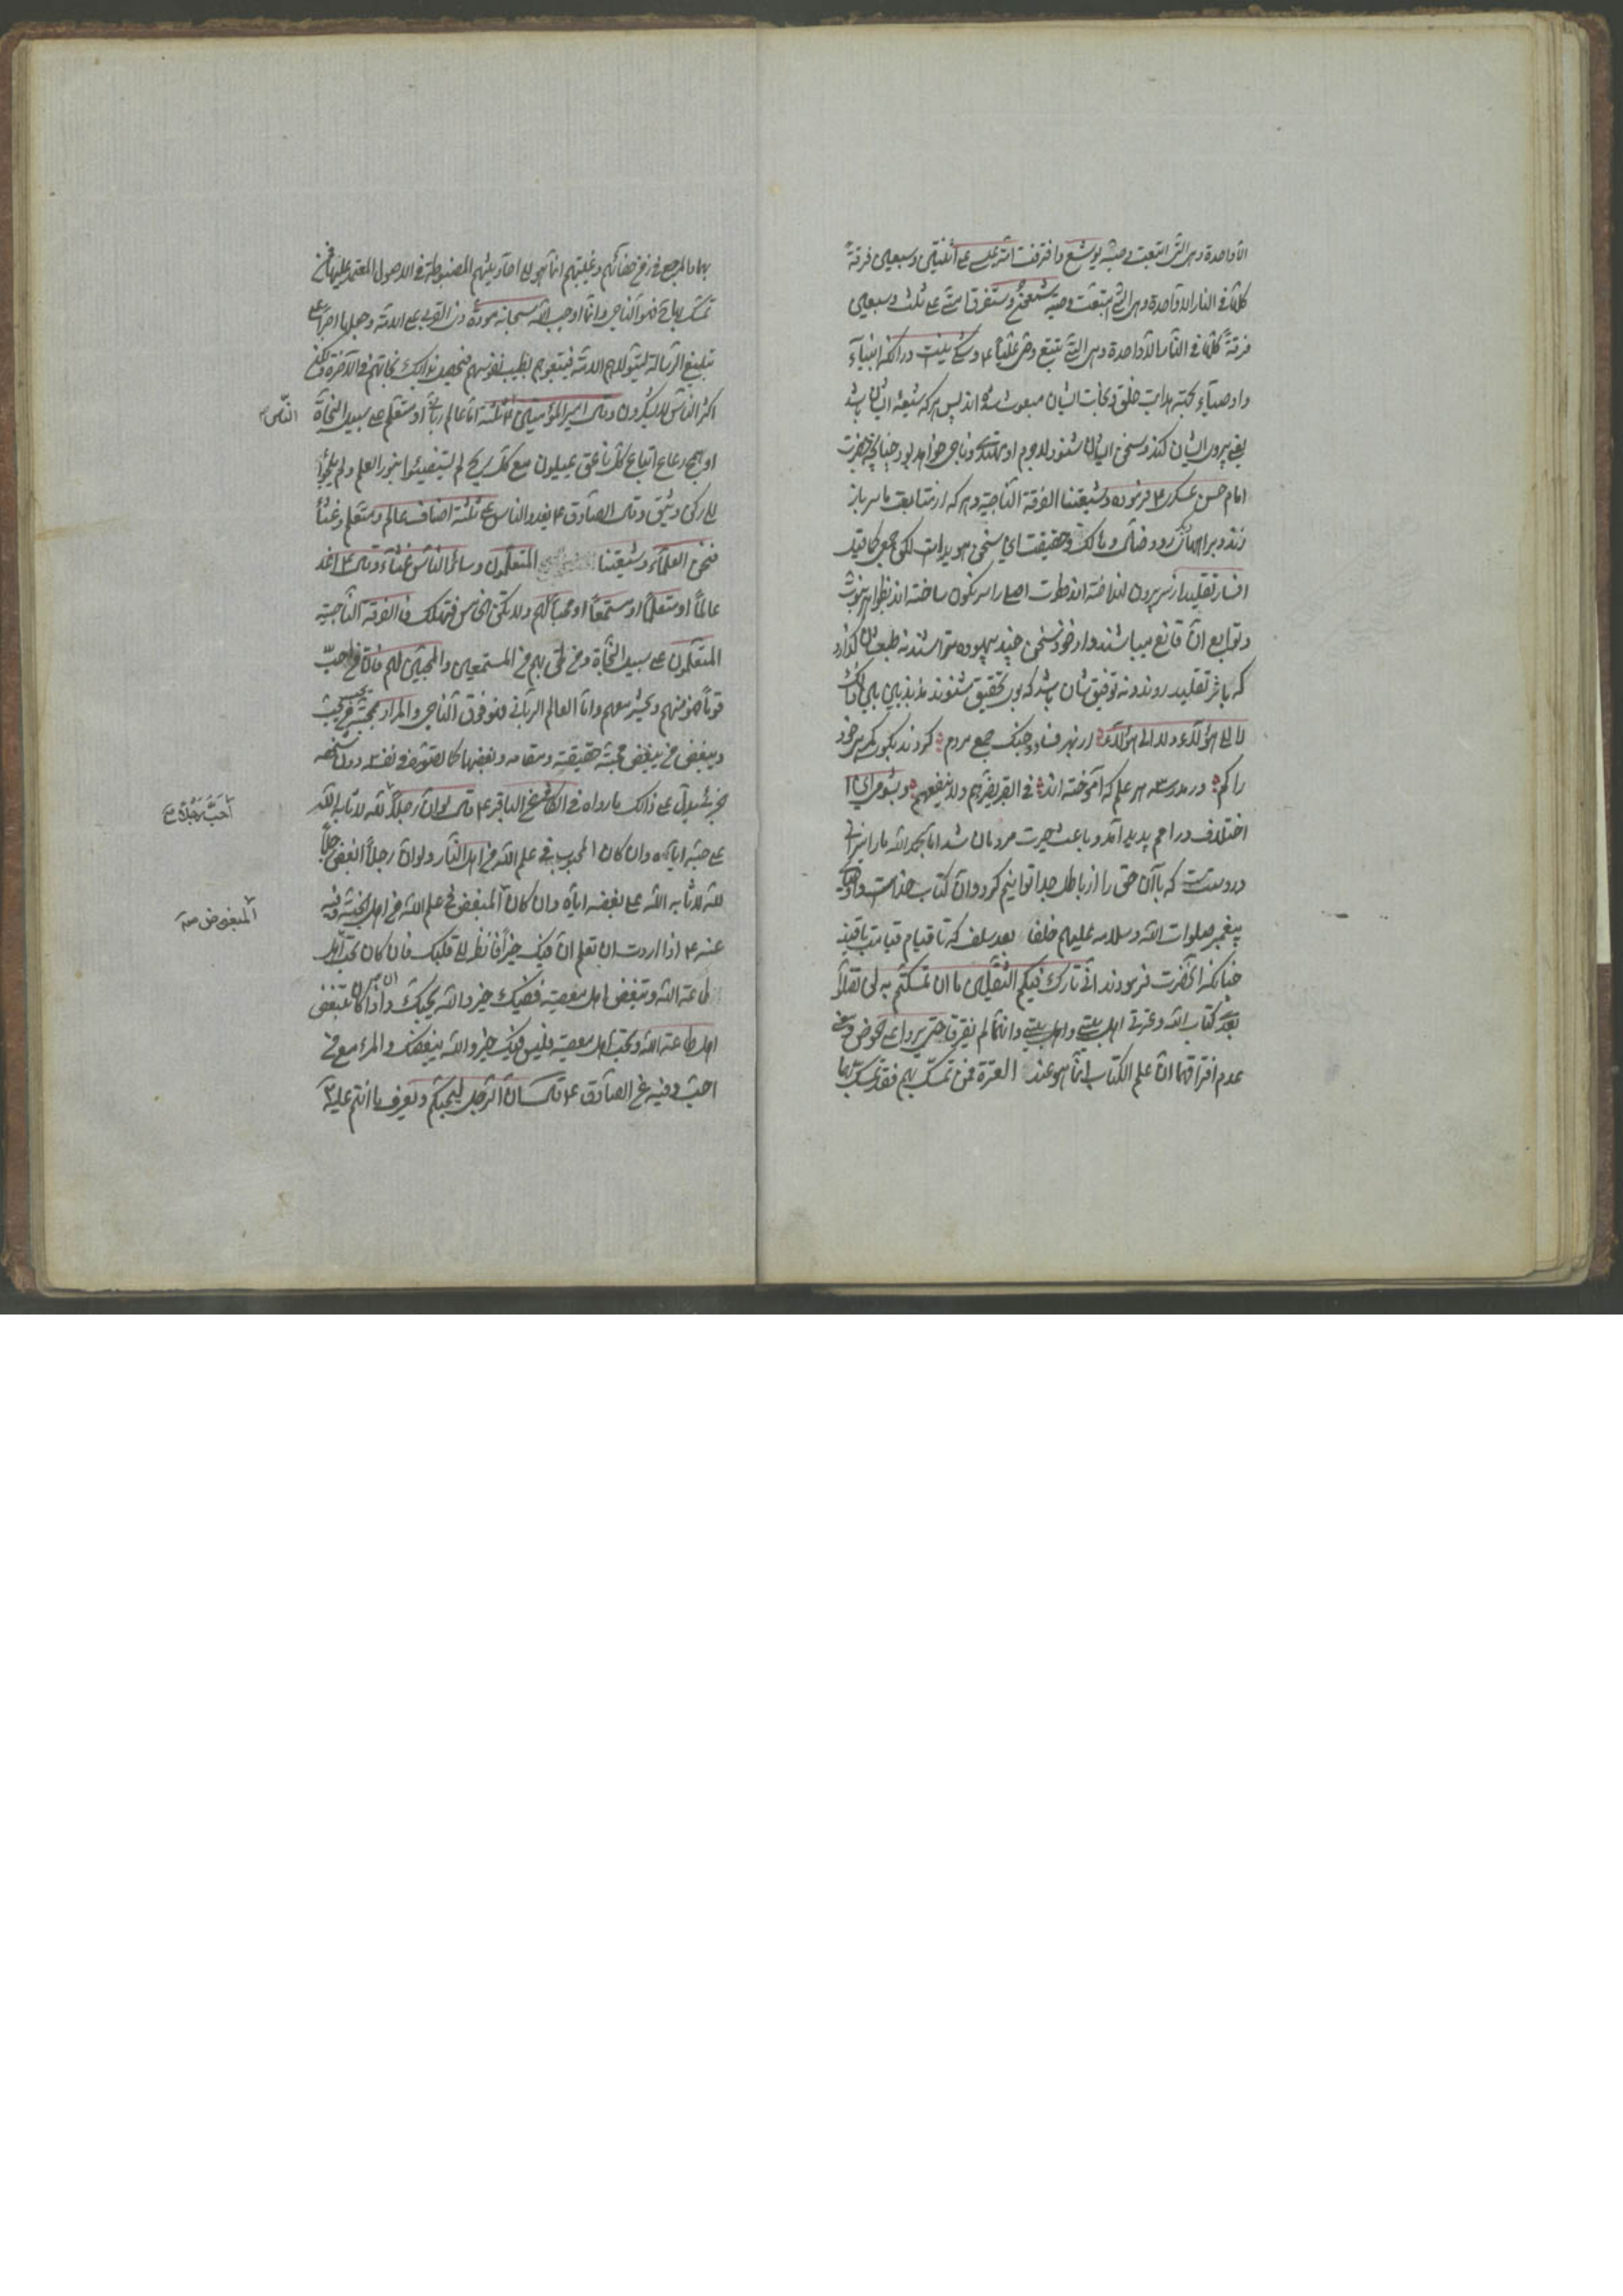 الا واحدة و هی التی اتبعت وصیه یوشع و افترقت امة عیسی علی اثنتین و سبعین فرقةً
کلها فی النار الا واحدة و هی التی اتبعت وصیه شمعون و ستفرق امتی علی ثلث و سبعین
فرقةً کلها فی النار الا واحدة و هی التی تتبع وصیی علیاً ع و شکی نیست در آنکه انبیآء
و اوصیآء بجهة هدایت خلق و نجات ایشان مبعوث شده اند پس هر که شیعه ایشان باشد
یعنی پیروی ایشان کند و سخن ایشان شنود لاجرم او مهتدی و ناجی خواهد بود چنانچه حضرت
امام حسن عسکری ع فرموده و شیعتنا الفرقة الناجیة و هر که از متابعت ما سر باز
زند و براه دیگر رود ضال و هالک و حقیقت این سخن هویداست لکن جمعی کما قیل
افسار تقلید از سر بیرون انداخته اند فطرت اصلی را سرنگون ساخته اند بظواهر نبوت
و توابع آن قانع میباشند و از خود سخن چند بیهوده میتراشند نه طبعشان گذارد
که باثر تقلید روند و نه توفیقشان باشد که بوی تحقیق شنوند مذبذبین بین ذلک
لا الی هؤلآء و لا الی هؤلآء از بهر فساد و جنک جمعی مردم کردند بکوی کمرهی خود
را کم در مدرسه هر علم که آموخته اند فی القبر یضرهم و لا ینفعهم و بشومی این
اختلاف در امم پدید آمد و باعث حیرت مردمان شد اما بحمد الله ما را میزانی
در دست است که بآن حق را از باطل جدا توانیم کرد و آن کتاب خداست و اهل بیت
پیغمبر صلوات الله و سلامه علیهم خلفا بعد سلف که تا قیام قیامت باقیند
چنانکه آنحضرت فرمودند انی تارک فیکم الثقلین ما ان تمسکتم به لن تضلوا
بعدی کتاب الله و عترتی اهل بیتی و انهما لن یفترقا حتی یردا علی الحوض و معنی
عدم افتراقهما ان علم الکتاب انما هو عند العترة فمن تمسک بهم فقد تمسک بهما
بهما و المرجع فی زمن خفائهم و غیبتهم انما هو الی احادیثهم المضبوطة فی الاصول المعتمد علیها فمن
تمسک بها فهو الناجی و انما اوجب الله سبحانه مودة ذی القربی علی الامة و جعلها اجراً علی
تبلیغ الرسالة لیتولاهم الامة فیتبعوهم بطیب نفوسهم فیحصل بذلک نجاتهم فی الآخرة و لکن
اکثر الناس لا یشکرون و قال امیر المؤمنین ع ثلثة اما عالم ربانی او متعلم علی سبیل النجاة
الناس
او همج رعاع اتباع کل ناعق یمیلون مع کل ریح لم یستضیئوا بنور العلم و لم یلجؤا
الی رکن وثیق و قال الصادق ع یغدو الناس علی ثلثة اصناف عالم و متعلم و غثآء
فنحن العلمآء و شیعتنا المتعلمون و سائر الناس غثآء و قال ع اغد
عالماً او متعلماً او مستمعاً او محباً لهم و لا تکن الخامس فتهلک فالفرقة الناجیة
المتعلمون علی سبیل النجاة و من لحق بهم من المستمعین و المحبین لهم فان من احب
قوماً فهو منهم و یحشر معهم و اما العالم الربانی فهو فوق الناجی و المراد بمحبتهم من یحب
و یبغض من یبغض محبة حقیقته و مقامه و بغضها کما تصوره فی نفسه دون شخصه
الجزئی یدل علی ذلک ما رواه فی الکافی عن الباقر ع قال لو ان رجلاً لله لاثابه الله
احب رجلا صح
علی حبه ایاه و ان کان المحبوب فی علم الله من اهل النار و لو ان رجلاً ابغض رجلاً
لله لاثابه الله علی بغضه ایاه و ان کان المبغض فی علم الله من اهل الجنة و فیه
المبغوض صح
عنه ع اذا اردت ان تعلم ان فیک خیراً فانظر الی قلبک فان کان یحب اهل
طاعة الله و یبغض اهل معصیته ففیک خیر و الله یحبک و اذا کان یبغض
اهل طاعة الله و یحب اهل معصیته فلیس فیک خیر و الله یبغضک و المرء مع من
احب و فیه عن الصادق ع قال ان الرجل لیحبکم و ما یعرف ما انتم علیه